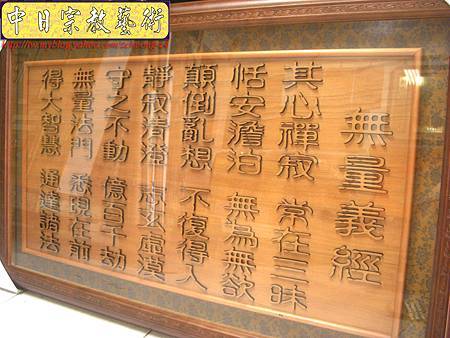 中日宗教藝術
無量義經
其心禪寂 常在三昧
恬安澹泊 無為無欲
顛倒亂想 不復得入
靜寂清澄 志玄虛漠
守之不動 億百千劫
無量法門 悉現在前
得大智慧 通達諸法